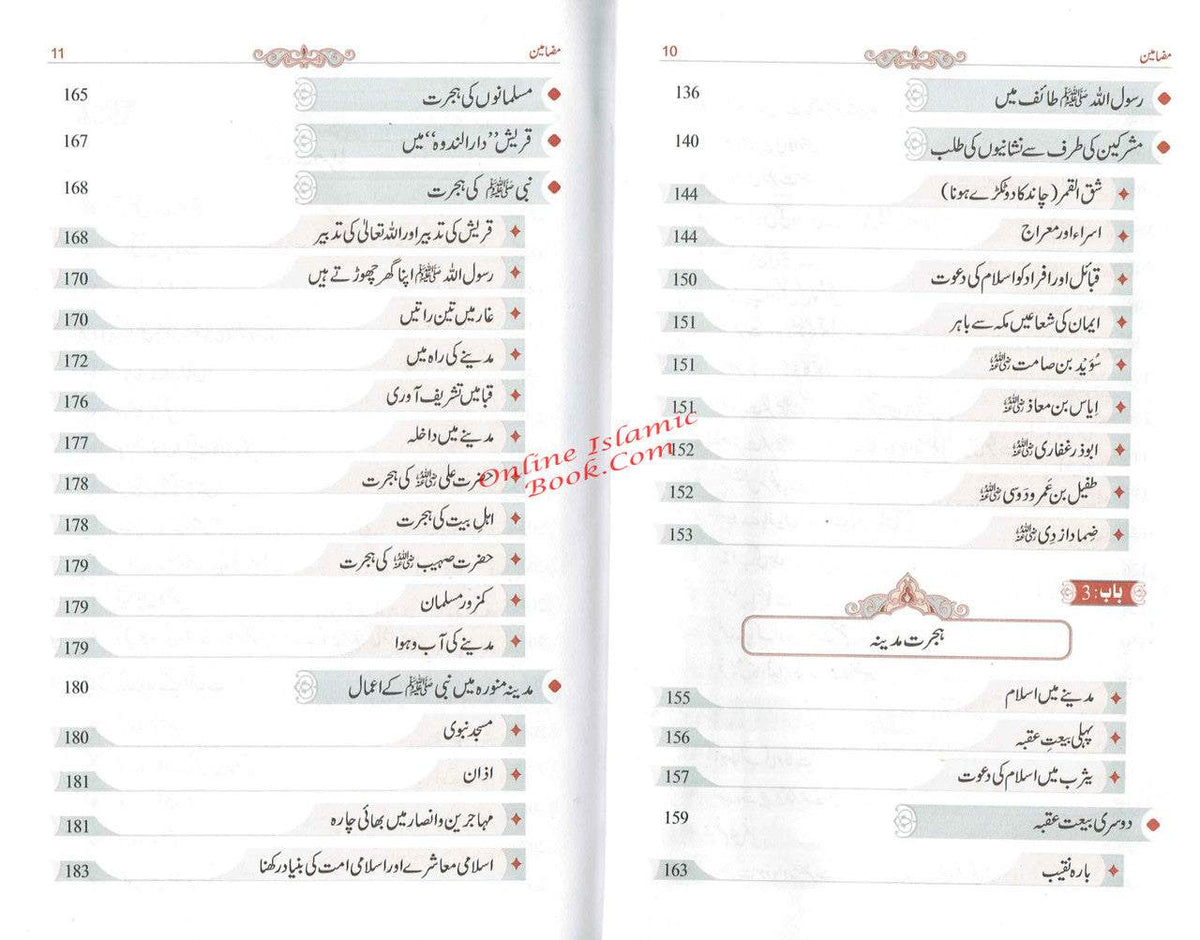 مضامین 10
رسول اللہ ﷺ طائف میں 136
مشرکین کی طرف سے نشانیوں کی طلب 140
شق القمر (چاند کا دو ٹکڑے ہونا) 144
اسراء اور معراج 144
قبائل اور افراد کو اسلام کی دعوت 150
ایمان کی شعاعیں مکہ سے باہر 151
سُوَیْد بن صامت رضی اللہ عنہ 151
اِیاس بن معاذ رضی اللہ عنہ 151
ابوذر غفاری رضی اللہ عنہ 152
طفیل بن عَمرو دَوسی رضی اللہ عنہ 152
ضِماد ازدِی رضی اللہ عنہ 153
باب: 3
ہجرت مدینہ
مدینے میں اسلام 155
پہلی بیعتِ عقبہ 156
یثرب میں اسلام کی دعوت 157
دوسری بیعت عقبہ 159
بارہ نقیب 163
مضامین 11
مسلمانوں کی ہجرت 165
قریش ”دارالندوہ“ میں 167
نبی ﷺ کی ہجرت 168
قریش کی تدبیر اور اللہ تعالٰی کی تدبیر 168
رسول اللہ ﷺ اپنا گھر چھوڑتے ہیں 170
غار میں تین راتیں 170
مدینے کی راہ میں 172
قبا میں تشریف آوری 176
مدینے میں داخلہ 177
حضرت علی رضی اللہ عنہ کی ہجرت 178
اہلِ بیت کی ہجرت 178
حضرت صہیب رضی اللہ عنہ کی ہجرت 179
کمزور مسلمان 179
مدینے کی آب و ہوا 179
مدینہ منورہ میں نبی ﷺ کے اعمال 180
مسجد نبوی 180
اذان 181
مہاجرین و انصار میں بھائی چارہ 181
اسلامی معاشرے اور اسلامی امت کی بنیاد رکھنا 183
Online Islamic
Book.Com